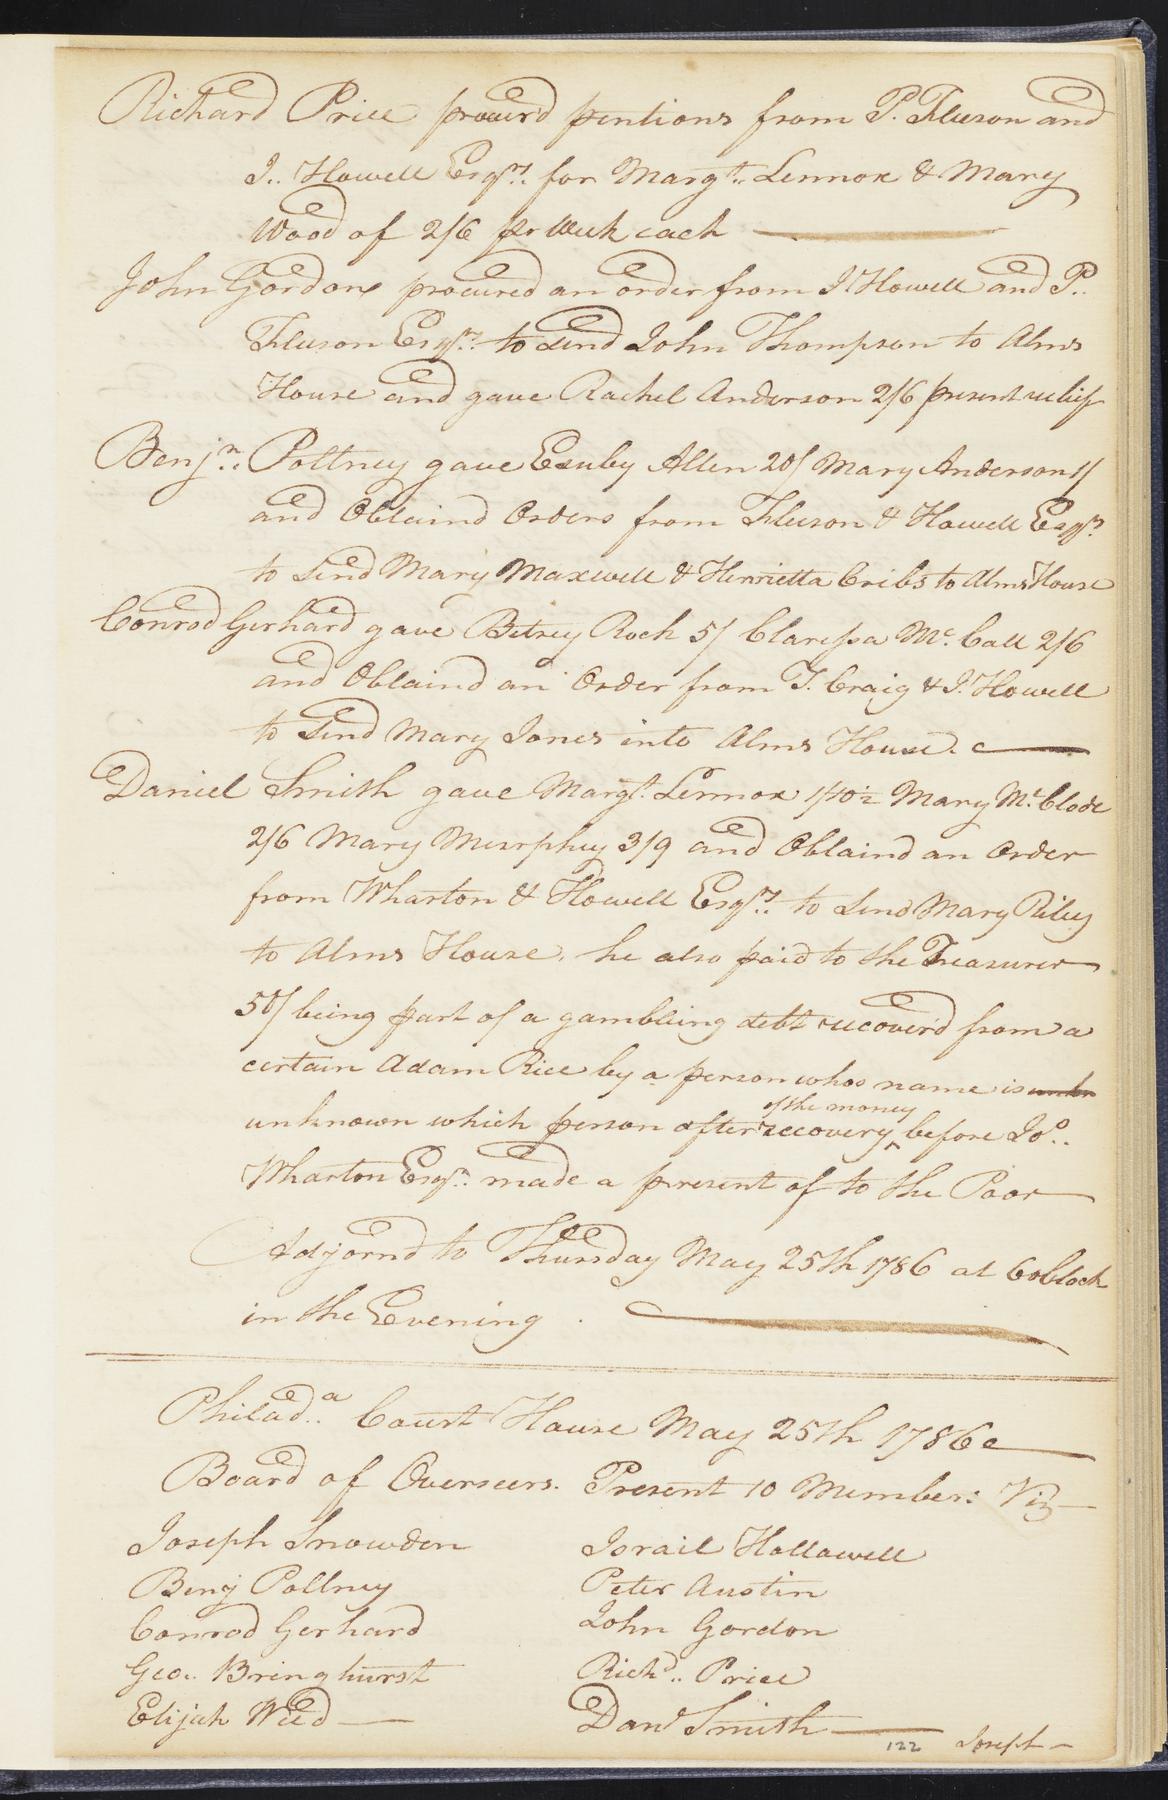 Richard Price procur'd pentions from P. Fleeson and
J. Howell Esqrs. for Margt. Lennox & Mary
Wood of 2/6 pr Week each
John Gordon procured an order from J. Howell and P.
Fleeson Esqrs. to Send John Thompson to Alms
House and gave Rachel Anderson 2/6 present relief
Benjn. Poltney gave Allen 20/ Mary Anderson 1/
and Obtaind Orders from Fleeson & Howell Esqrs
to Send Mary Maxwell & Henrietta Cribs to Alms House
Conrod Gerhard gave Betsey Rock 5/ Claressa Mc. Call 2/6
and Obtaind an Order from T. Craig & J. Howell
to Send Mary Jones into Alms House.
Daniel Smith gave Margt. Lennox 1/10½ Mary Mc. Clode
2/6 Mary Murphey 3/9 and Obtaind an Order
from Wharton & Howell Esqrs. to Send Mary Riley
to Alms House. he also paid to the Treasurer
50/ being part of a gambling debt recover'd from a
certain Adam Rice by a person whos name is unkn
of the money
unknown which person after recovery ^ before Jos..
Wharton Esqr. made a present of to the Poor
Adjornd to Thursday May 25th 1786 at 6 oClock
in the Evening.
Philada. Court House May 25th 1786
Board of Overseers. Present 10 Members Viz
Joseph Snowden Israil Hollawell
Benj Poltney Peter Austin
Conrod Gerhard John Gordon
Geo. Bringhurst Richd. Price
Elijah Weed Danl Smith
122 Joseph